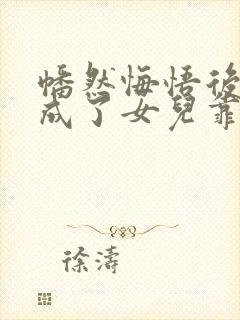 幡然悔悟後
成了女兒靠
徐濤